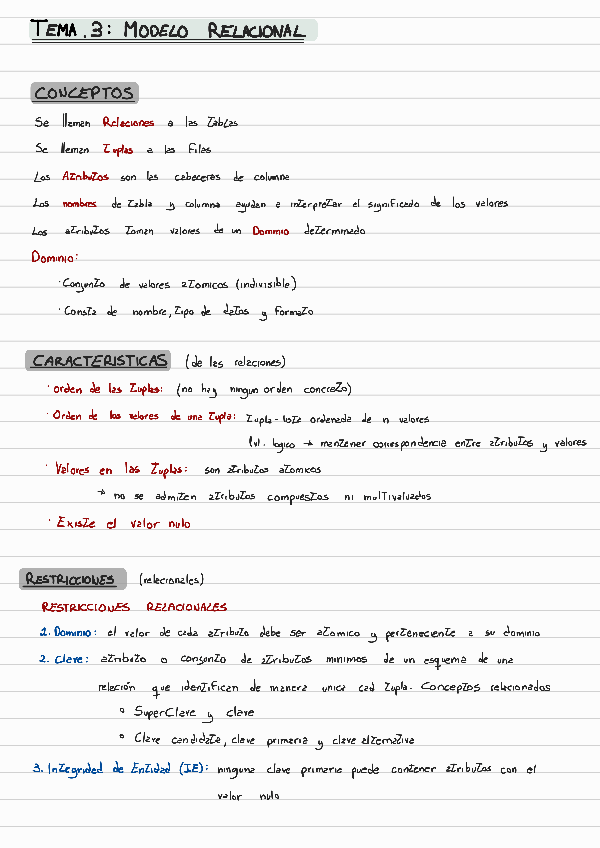 TEMA.3: MODELO RELACIONAL
CONCEPTOS
Se llaman Relaciones a las tablas
Se llaman Tuplas a las filas
Los Atributos son las cabeceras de columna
Los nombres de tabla y columna ayudan a interpretar el significado de los valores
Los atributos toman valores de un Dominio determinado
Dominio:
· Conjunto de valores atomicos (indivisible)
· Consta de nombre, tipo de datos y formato
CARACTERISTICAS (de las relaciones)
· orden de las Tuplas: (no hay ningun orden concreto)
· Orden de los valores de una Tupla: Tupla-lista ordenada de n valores
lvl. logico → mantener correspondencia entre atributos y valores
· Valores en las Tuplas: son atributos atomicos
→ no se admiten atributos compuestos ni multivaluados
· Existe el valor nulo
RESTRICCIONES (relacionales)
RESTRICCIONES RELACIONALES
1. Dominio: el valor de cada atributo debe ser atomico y perteneciente a su dominio
2. Clave: atributo o conjunto de atributos minimos de un esquema de una
relación que identifican de manera unica cad tupla. Conceptos relacionados
° SuperClave y clave
° Clave candidata, clave primaria y clave alternativa
3. Integridad de Entidad (IE): ninguna clave primaria puede contener atributos con el
valor nulo